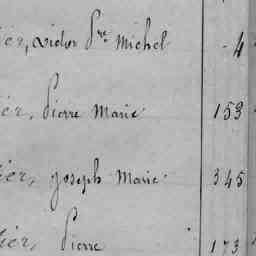 ier, Victor Pre Michel 4
ier, Pierre Marie 153
ier, Joseph Marie 345
ier, Pierre 173